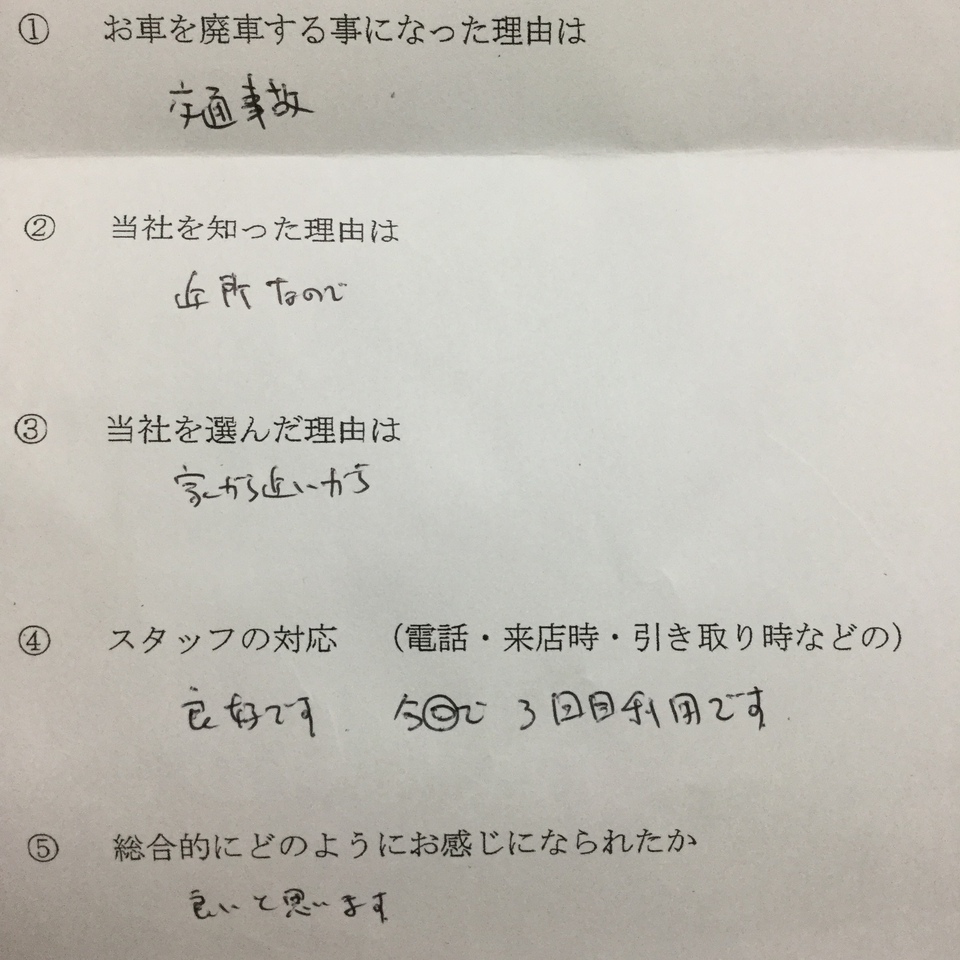 ① お車を廃車する事になった理由は
交通事故
② 当社を知った理由は
近所なので
③ 当社を選んだ理由は
家から近いから
④ スタッフの対応 （電話・来店時・引き取り時などの）
良好です 今回で 3回目利用です
⑤ 総合的にどのようにお感じになられたか
良いと思います